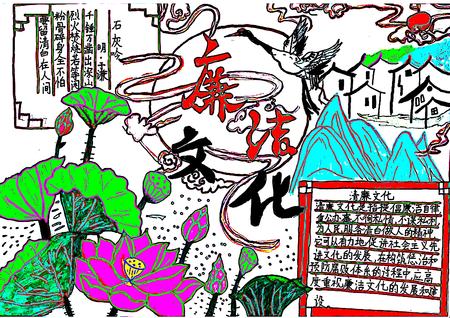 石灰吟
明·于谦
千锤万凿出深山
烈火焚烧若等闲
粉骨碎身全不怕
要留清白在人间
廉洁
文化
清廉文化
清廉文化是指 廉洁自律
不谋私利
为人民服务清白做人的精神
它可以有力地促进社会主义先
进文化的发展,在构筑惩治和
预防腐败体系的过程中,应高
度重视廉洁文化的发展和建
设